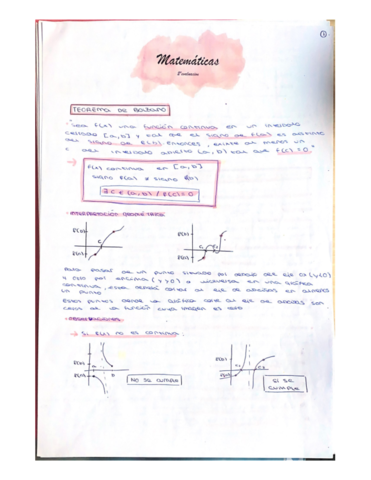 1
Matemáticas
1ª evaluación
TEOREMA DE BOLZANO
"Sea f(x) una función continua en un intervalo
cerrado [a,b] y tal que el signo de f(a) es distinto
del signo de f(b). Entonces, existe al menos un
c del intervalo abierto (a,b) tal que f(c)=0"
→ f(x) continua en [a,b]
signo f(a) ≠ signo f(b)
∃ c ∈ (a,b) / f(c)=0
· INTERPRETACIÓN GEOMÉTRICA
f(b)
f(a)
c
f(b)
f(a)
Para pasar de un punto situado por debajo del eje OX (y<0)
a otro por encima (y>0) o viceversa en una gráfica
continua, esta deberá cortar al eje de abscisas en al menos
un punto
Estos puntos donde la gráfica corta al eje de abscisas son
ceros de la función
· OBSERVACIONES
→ Si f(x) no es continua:
f(b)
f(a)
NO SE CUMPLE
f(b)
f(a)
SÍ SE
CUMPLE